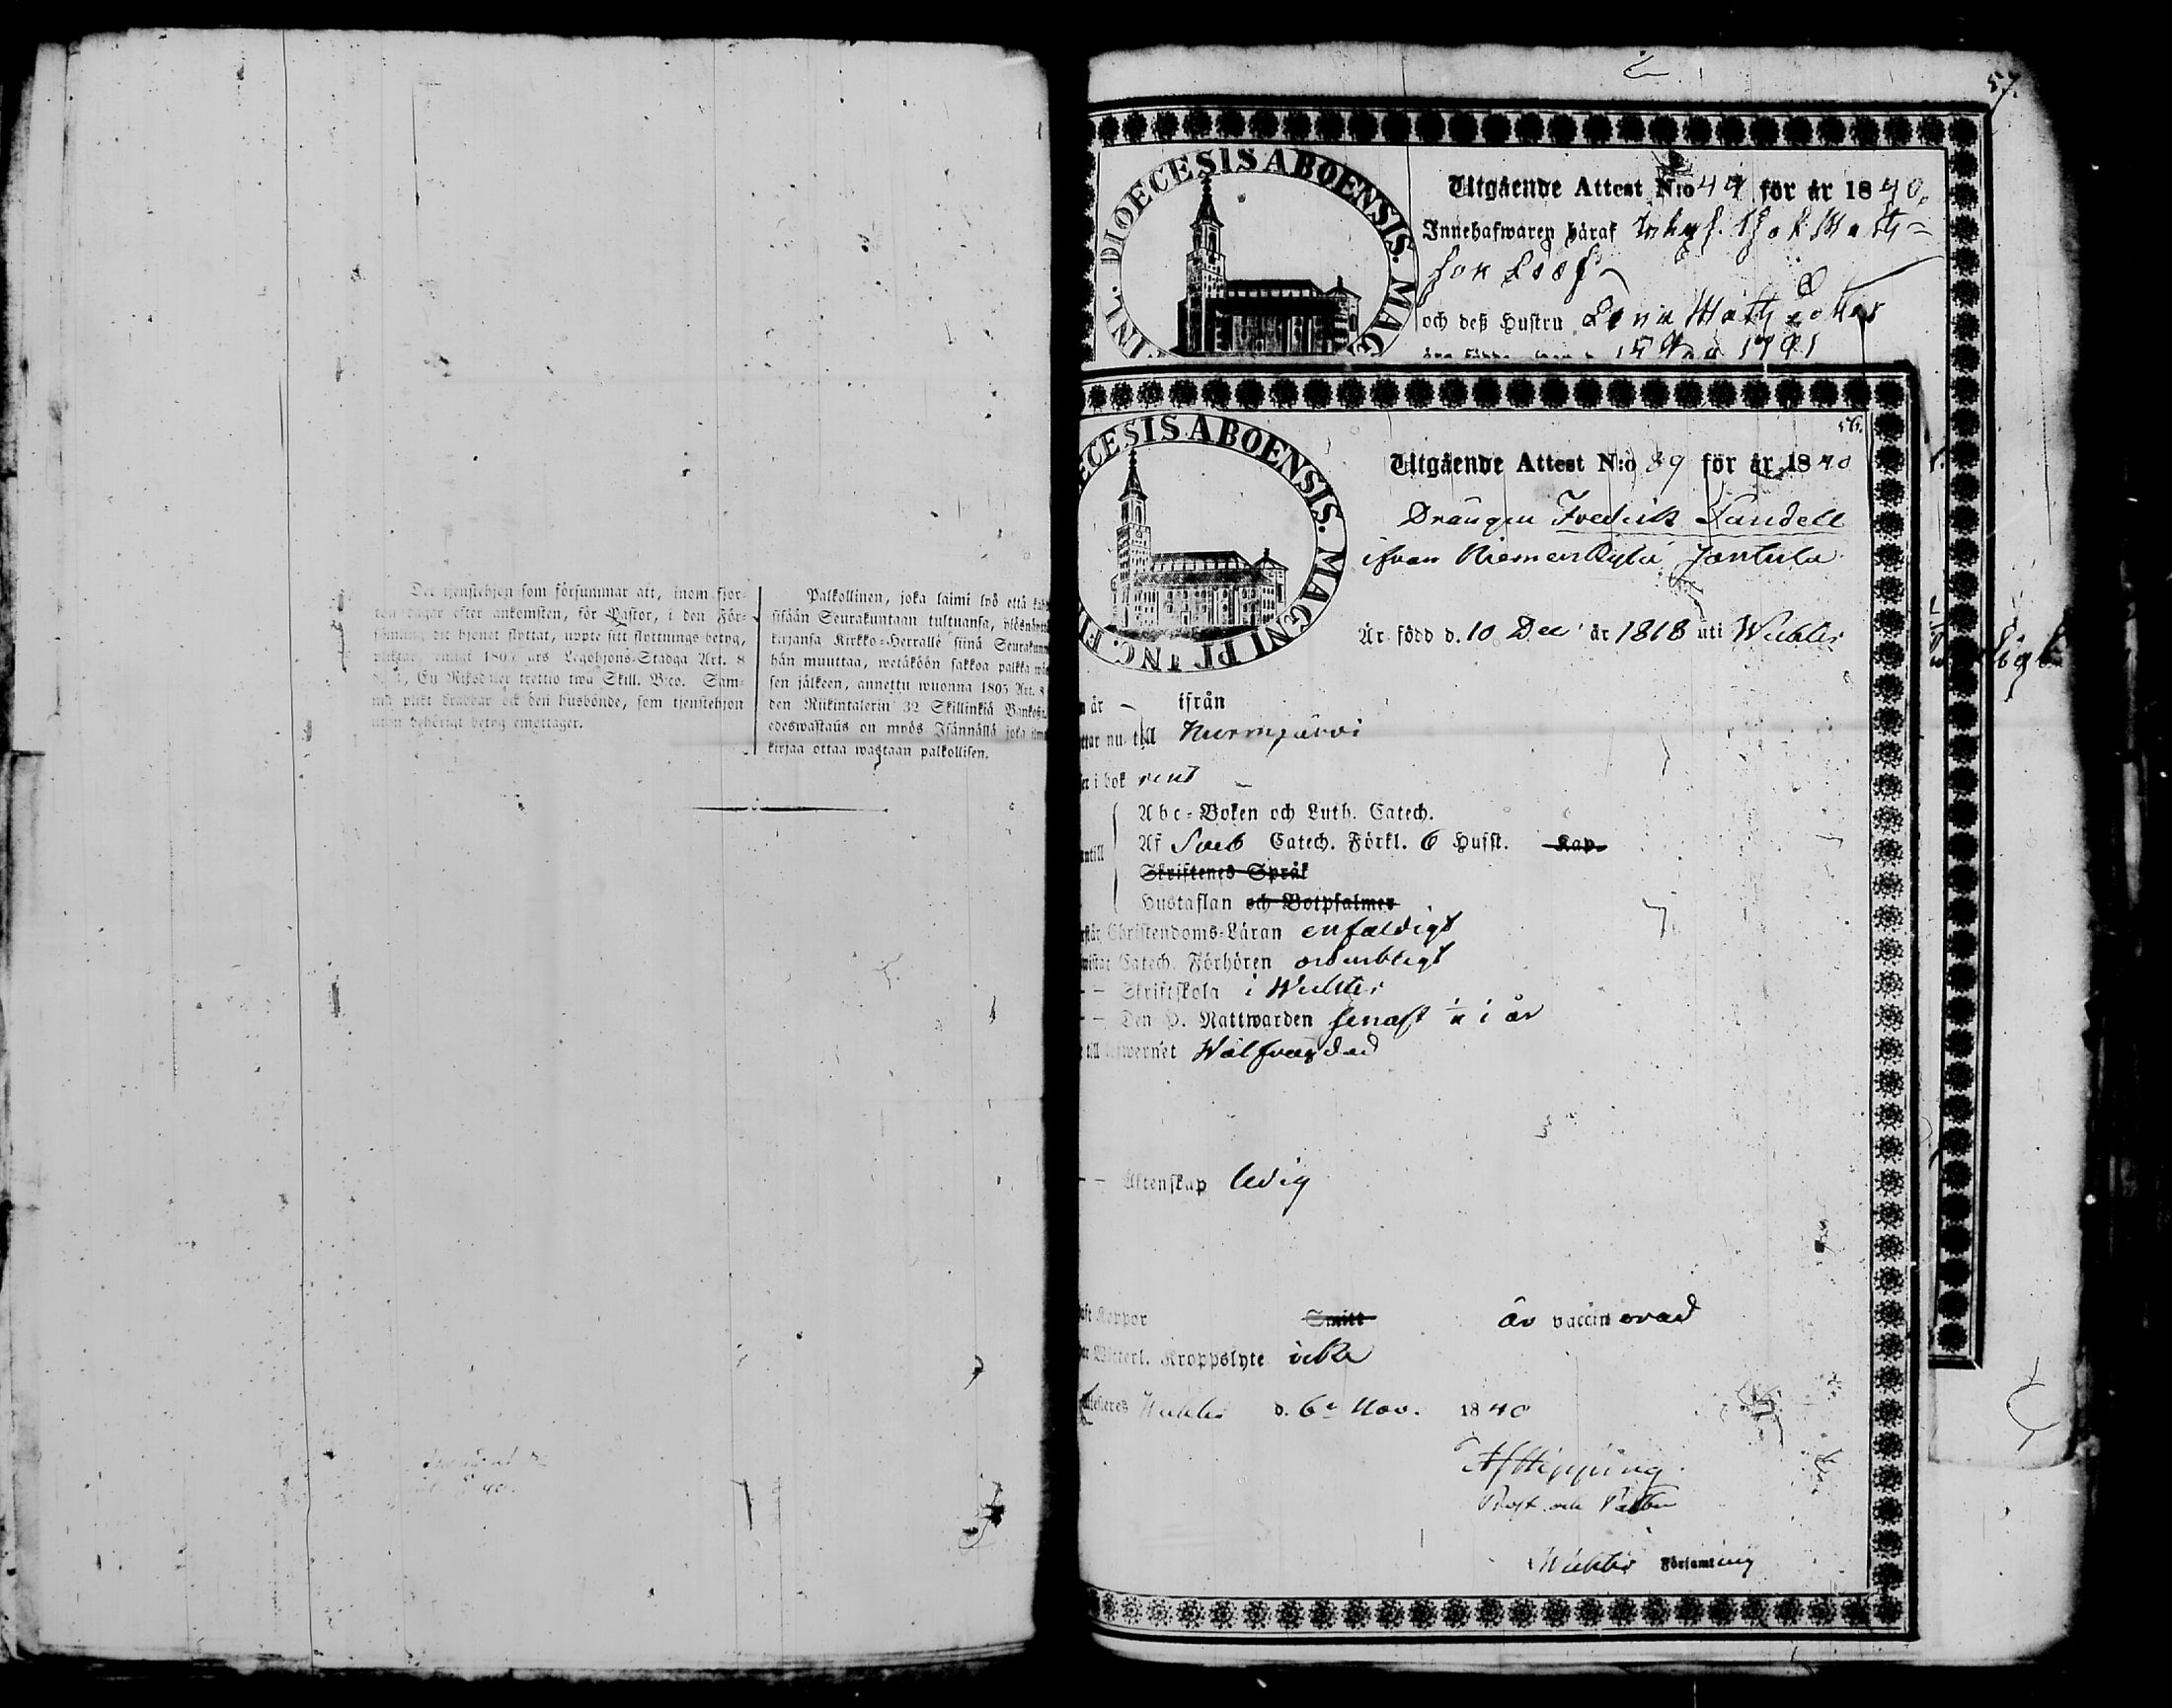 Det tjenstehjon som försummar att, inom fjor-
ton dagar efter ankomsten, för Pastor, i den För-
samling dit hjonet flyttat, uppte sitt flyttnings-betyg,
pliktar, enligt 1805 års Legohjons-Stadga Art. 8
En Riksdaler trettio twå Skill. B:co. Sam-
ma plikt drabbar ock den husbonde, som tjenstehjon
utan behörigt betyg emottager.
Palkollinen, joka laimi lyö että
sisään Seurakuntaan tultuansa, ylösnäyttä
kirjansa Kirkko-Herralle siinä Seurakunn
hän muuttaa, wetäköön sakkoa palkka
sen jälkeen, annettu wuonna 1805 Art. 8
den Riikintalerin 32 Skillinkiä Banko
edeswastaus on myös Isännällä joka ilma
kirjaa ottaa wastaan palkollisen.
57.
DIOECESIS ABOENSIS. MAG
FINL.
Utgående Attest N:o 44 för år 1840.
Innehafwaren häraf Inhys. Isak Math-
son Lööf
och deß Hustru Lena Math dotter
1791
56.
ECESIS ABOENSIS. MAGNI PRINC. FI
Utgående Attest N:o 89 för år 1840
Drängen Fredrik Sundell
ifrån Niemenkylä Jantula
Är född d. 10 Dec år 1818 uti Wichtis
n är – ifrån
ttar nu till Nurmijärvi
er i bok rent
Abc-Boken och Luth. Catech.
Af Sveb Catech. Förkl. 6 Hufst. Kap.
antill
Skriftenes Språk
Hustaflan och Botpsalmer
rstår Christendoms-Läran enfaldigt
wistat Catech. Förhören ordentligt
– – Skriftskola i Wichtis
– – Den H. Nattwarden senast i år
till lefwernet Wälfrägdad
– – Äktenskap ledig
aft Koppor Smitt är vaccinerad
ar Witterl. Kroppslyte icke
Attesteres Wichtis d. 6 Nov. 1840
Prost och Pastor
Wichtis Församling